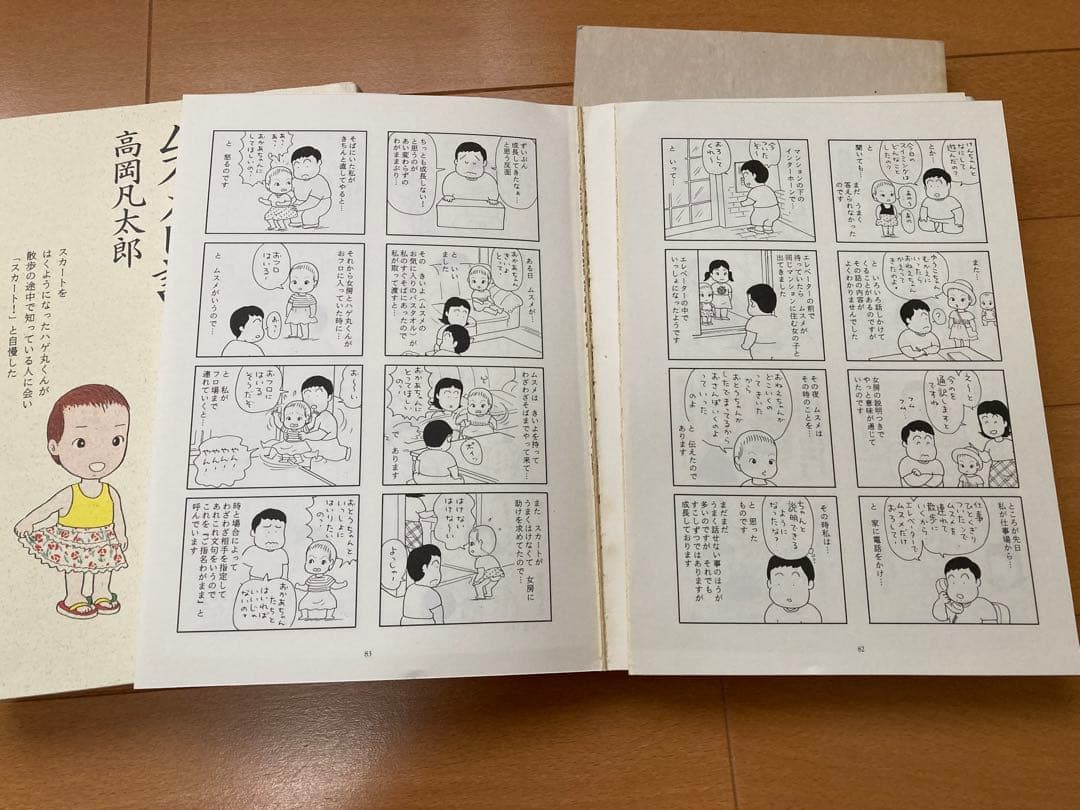 けんちゃんと
なにして
遊んだの？
とか…
今日の
スイミングは
どんなこと
したの？
と
聞いても…
まだ うまく
答えられなかった
のです
また…
と いろいろ話しかけて
くることがあるのですが
その話の内容が
よくわかりませんでした
え〜と
今のを
通訳しますと
ですね
フム
フム
女房の説明つきで
やっと意味が通じて
いたのです
ところが先日
私が仕事場から…
仕事
ひとくぎり
連れて
散歩に
いくから
エレベーターで
ムスメだけ
おろして…
と 家に電話をかけ…
マンションの下の
インターホーンで…
今
ついた
ぞ〜
おろして
くれ〜
と いって…
エレベーターの前で
待っていたら ムスメが
同じマンションに住む女の子と
出てきました
エレベーターの中で
いっしょになったようです
その夜 ムスメは
その時のことを…
おねえちゃんが
どこいくの
ってきいた
から
おとうちゃんが
したでまってるから
おさんぽいくのよ
っていった
のよ
と 伝えたので
あります
その時私は…
ちゃんと
説明できる
ように
なったな？
と 思った
ものです
まだまだ
うまく話せない事のほうが
多いのですが それでも
すこしずつではありますが
成長しております
82
ずいぶん
成長してきたなぁ…
と思う反面
ちっとも成長しない！
と思うのが
あい変わらずの
わがままぶり…
ある日 ムスメが…
おかあちゃん
きいよ
とって
と いい
ました
その きいよ（ムスメの
お気に入りのバスタオル）が
私のすぐそばにあったので
私が取って渡すと…
ムスメは きいよを持って
わざわざそばまでやって来て…
ポイッ
おかあちゃんに
とってほしい
の？
で
あります
また スカートが
うまくはけなくて 女房に
助けを求めてたので…
はけない
はけない
よっしゃ
そばにいた私が
きちんと直してやると…
あ〜
あ〜
おかあちゃんに
してほしいの？
と 怒るのです
それから女房とハゲ丸くんが
おフロに入っていた時に…
おフロ
はいる〜
お〜
と ムスメがいうので…
お〜い
おフロに
はいる
そうだぞ
と 私が
フロ場まで
連れていくと…
やん！
やん！
やん！
おとうちゃんと
いっしょに
はいりたい
の！
おかあちゃん
たちと
はいれば
いいじゃ
ないの？
時と場合によって
わざわざ相手を指定して
あれこれ文句をいうので
これを『ご指名わがまま』と
呼んでいます
83
高岡凡太郎
スカートを
はくようになったハゲ丸くんが
散歩の途中で知っている人に会い
「スカート！」と自慢した